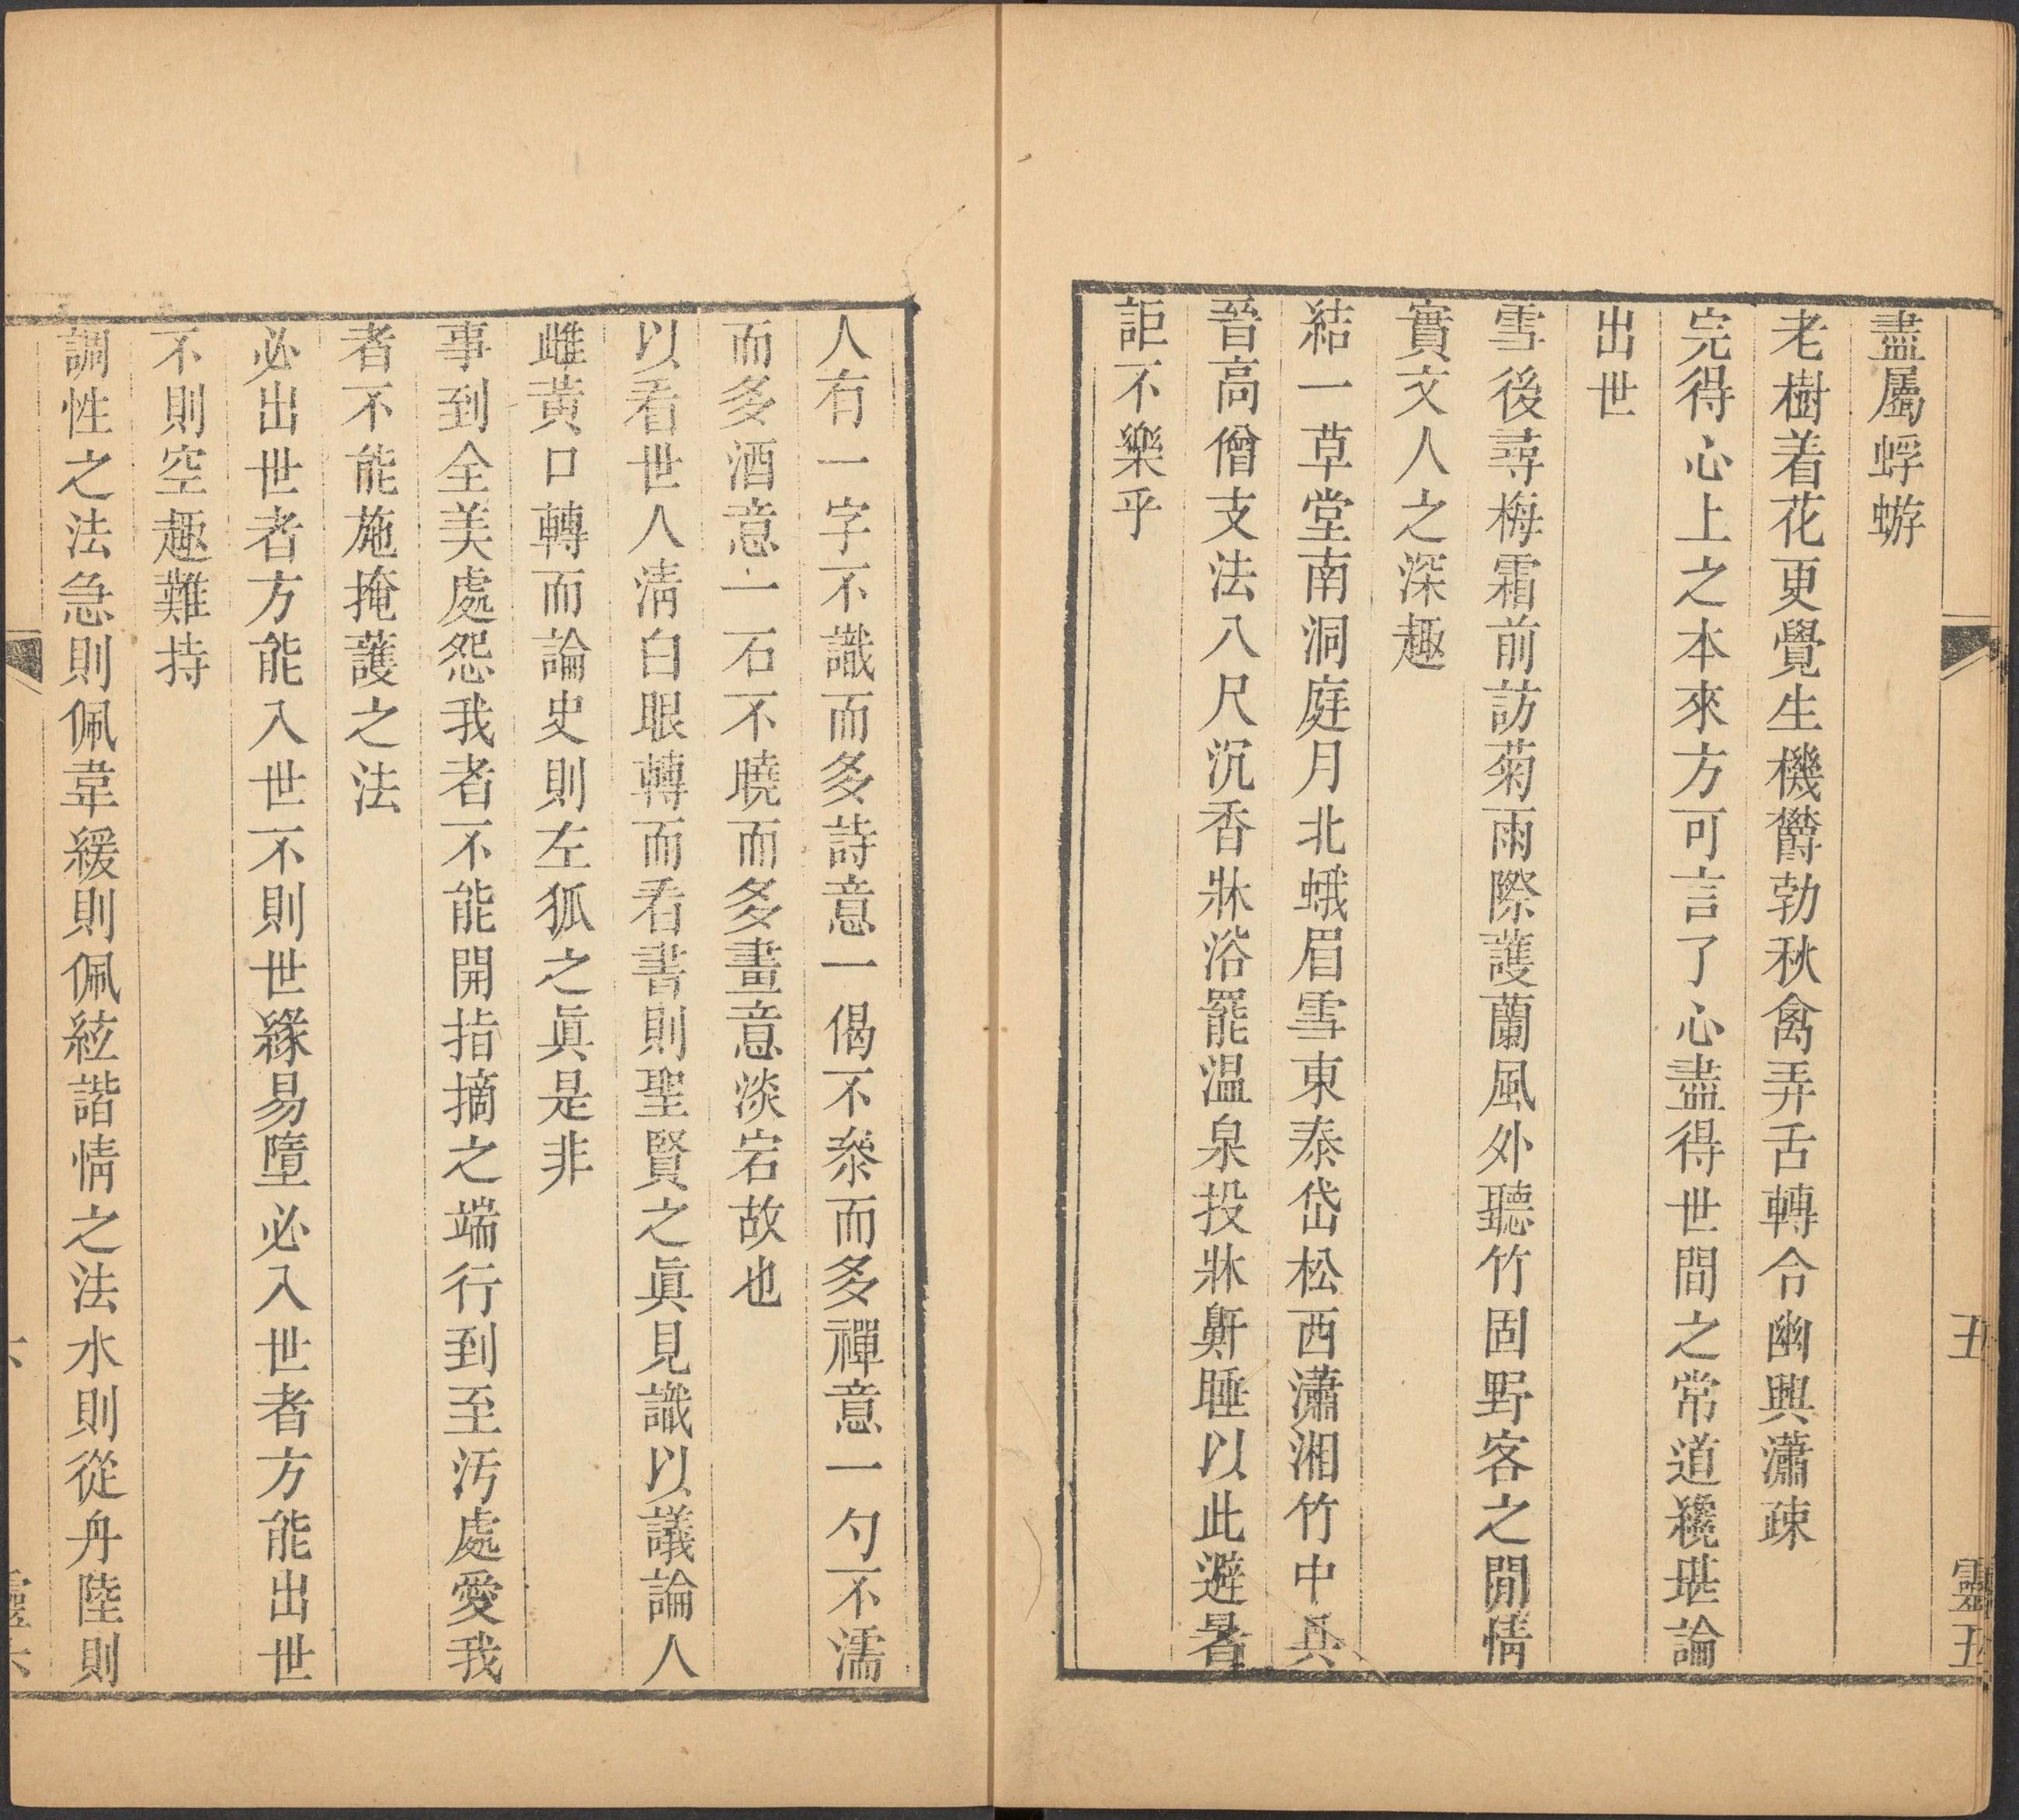 盡屬蜉蝣
老樹着花更覺生機欝勃秋禽弄舌轉令幽興瀟疎
完得心上之本來方可言了心盡得世間之常道纔堪論
出世
雪後尋梅霜前訪菊雨際護蘭風外聽竹固野客之閒情
實文人之深趣
結一草堂南洞庭月北蛾眉雪東泰岱松西瀟湘竹中具
晉高僧支法八尺沉香牀浴罷温泉投牀鼾睡以此避暑
詎不樂乎
五
靈五
人有一字不識而多詩意一偈不叅而多禪意一勺不濡
而多酒意一石不曉而多畫意淡宕故也
以看世人清白眼轉而看書則聖賢之眞見識以議論人
雌黄口轉而論史則左狐之眞是非
事到全美處怨我者不能開指摘之端行到至汚處愛我
者不能施掩護之法
必出世者方能入世不則世緣易墮必入世者方能出世
不則空趣難持
調性之法急則佩韋緩則佩絃諧情之法水則從舟陸則
六
靈六